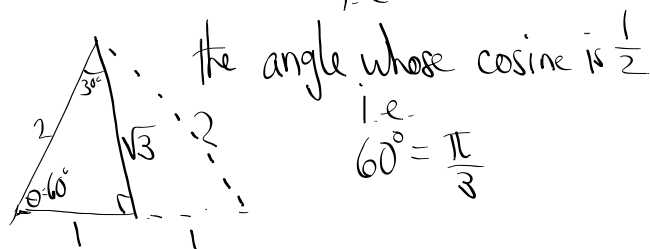 the angle whose cosine is 1/2
i.e.
60° = π/3
30°
2
√3
2
θ=60°
1
1